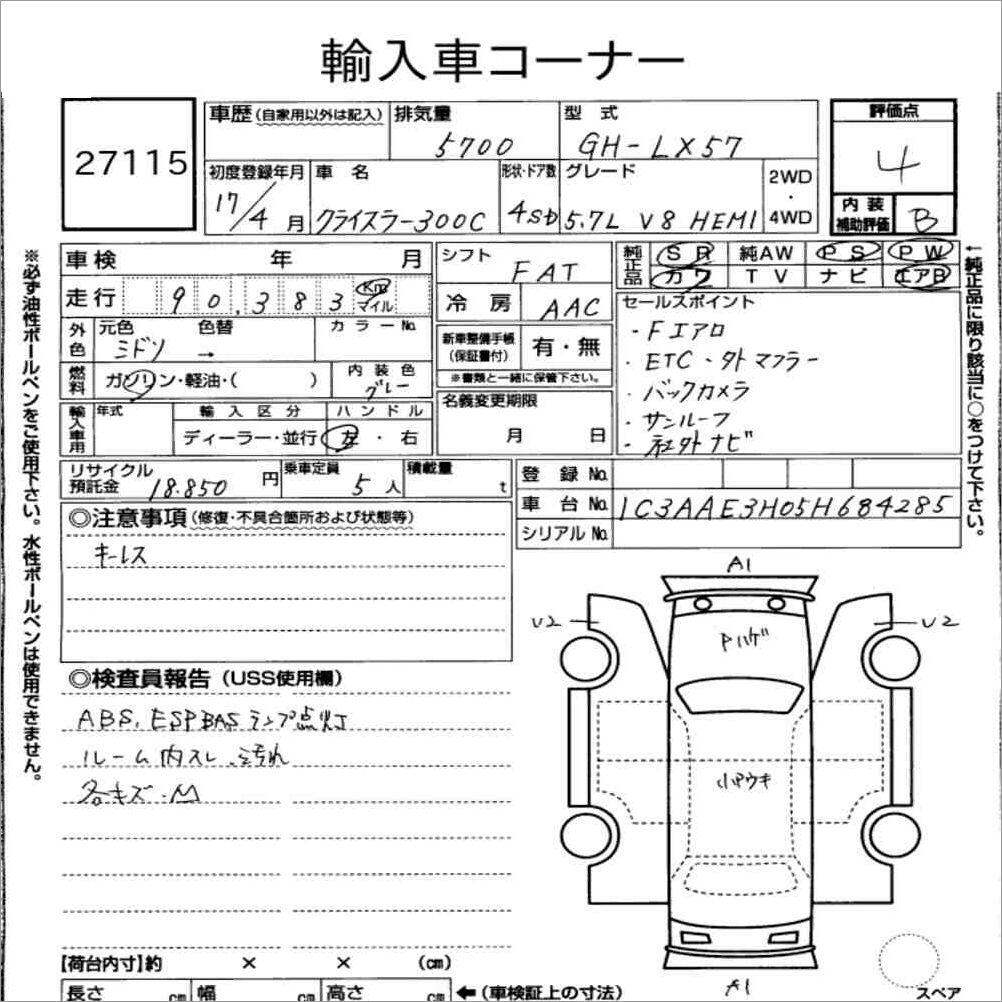 輸入車コーナー
27115
車歴(自家用以外は記入) 排気量 5700 型式 GH-LX57 評価点 4
初度登録年月 17/4月 車名 クライスラー300C 形状・ドア数 4SD グレード 5.7L V8 HEMI 2WD・4WD 内装補助評価 B
※必ず油性ボールペンをご使用下さい。水性ボールペンは使用できません。
車検 年 月
走行 90,383 Km マイル
外色 元色 ミドリ 色替 → カラーNo.
燃料 ガソリン・軽油・( ) 内装色 グレー
輸入車用 年式 輸入区分 ディーラー・並行 ハンドル 左・右
リサイクル預託金 18.850円 乗車定員 5人 積載量 t
シフト FAT
冷房 AAC
新車整備手帳(保証書付) 有・無
※書類と一緒に保管下さい。
名義変更期限 月 日
純正品 SR 純AW PS PW
カワ TV ナビ エアB
セールスポイント
・Fエアロ
・ETC・外マフラー
・バックカメラ
・サンルーフ
・社外ナビ
←純正品に限り該当に○をつけて下さい。
登録No.
車台No. 1C3AAE3H05H684285
シリアルNo.
◎注意事項(修復・不具合箇所および状態等)
キーレス
◎検査員報告(USS使用欄)
ABS, ESP BAS ランプ点灯
ルーム内スレ、汚れ
各キズ・M
A1
U2
U2
Pハゲ
小アウキ
A1
スペア
【荷台内寸】約 × × (cm)
長さ cm 幅 cm 高さ cm ←(車検証上の寸法)